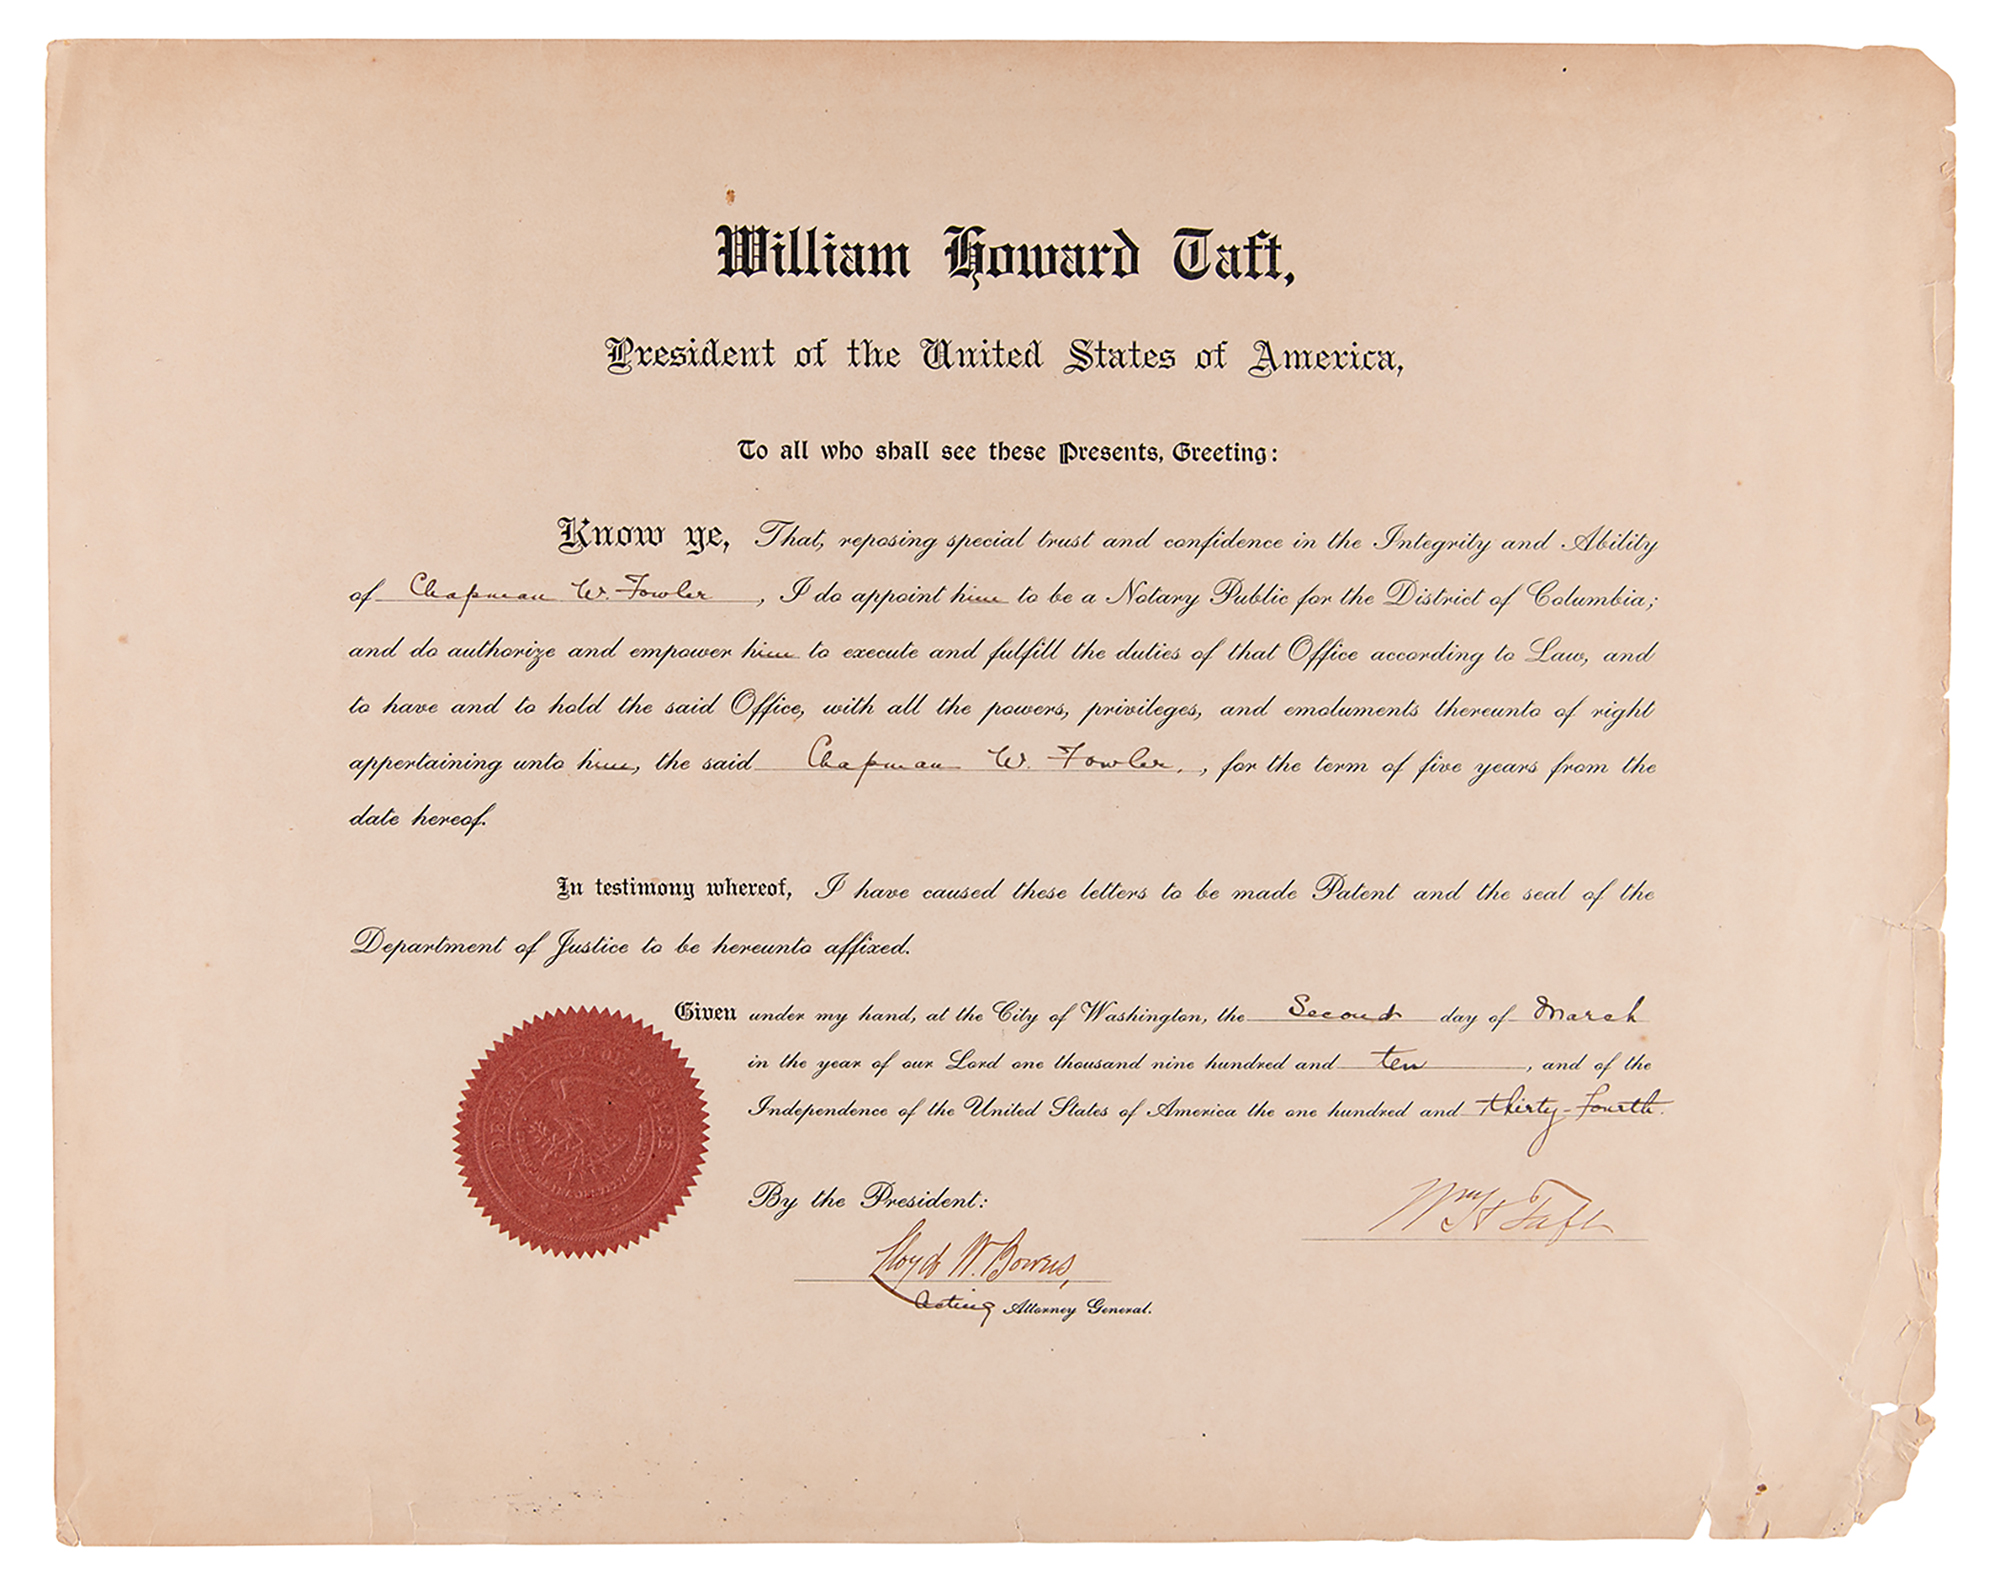 William Howard Taft,
President of the United States of America,
To all who shall see these Presents, Greeting:
Know ye, That, reposing special trust and confidence in the Integrity and Ability
of Chapman W. Fowler, I do appoint him to be a Notary Public for the District of Columbia;
and do authorize and empower him to execute and fulfill the duties of that Office according to Law, and
to have and to hold the said Office, with all the powers, privileges, and emoluments thereunto of right
appertaining unto him, the said Chapman W. Fowler, for the term of five years from the
date hereof.
In testimony whereof, I have caused these letters to be made Patent and the seal of the
Department of Justice to be hereunto affixed.
Given under my hand, at the City of Washington, the Second day of March
in the year of our Lord one thousand nine hundred and ten, and of the
Independence of the United States of America the one hundred and thirty-fourth.
By the President:
Wm H Taft
Lloyd W. Bowers,
Acting Attorney General.
DEPARTMENT OF JUSTICE